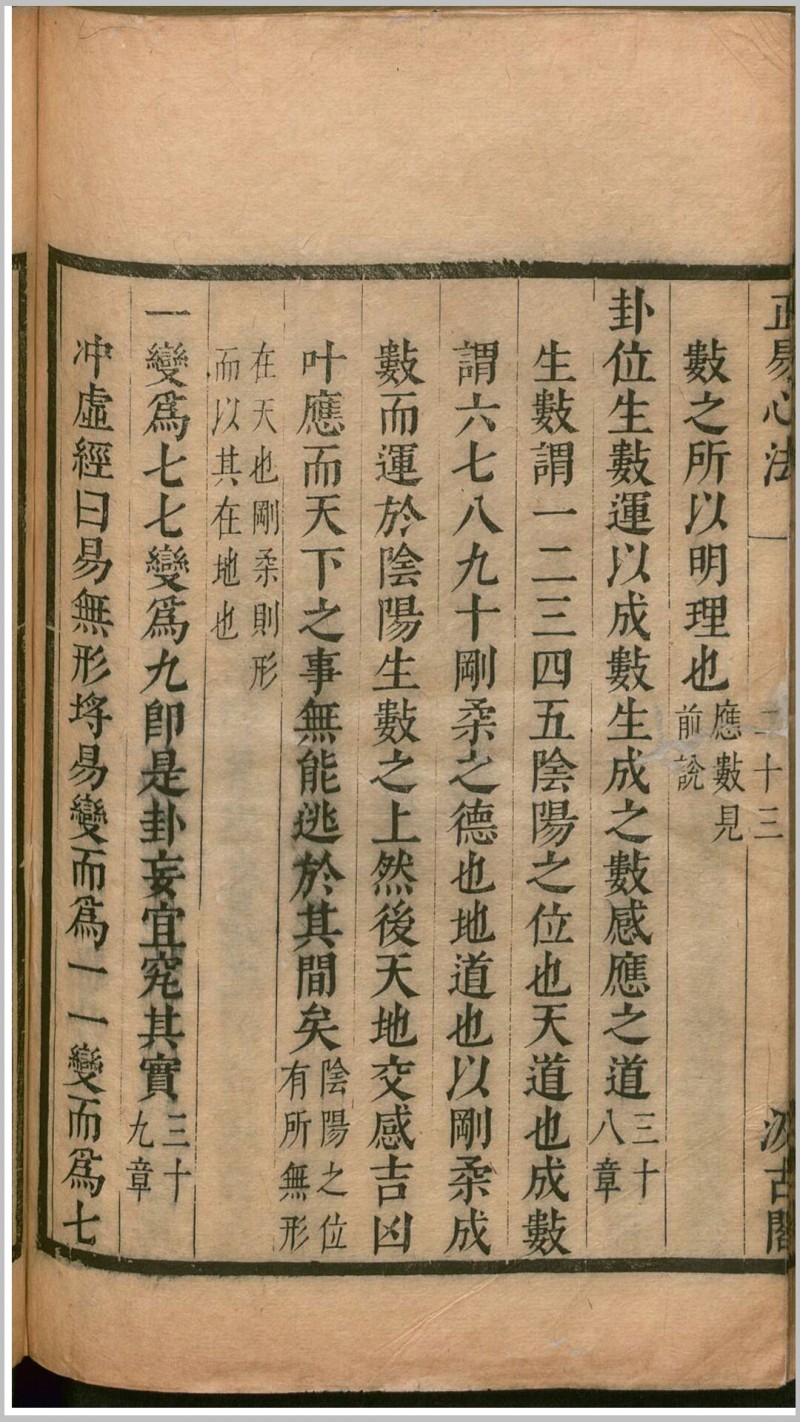 正易心法 一 二十三 汲古閣
數之所以明理也應數見前說
卦位生數運以成數生成之數感應之道三十八章
生數謂一二三四五陰陽之位也天道也成數
謂六七八九十剛柔之德也地道也以剛柔成
數而運於陰陽生數之上然後天地交感吉凶
叶應而天下之事無能逃於其間矣陰陽之位有所無形
在天也剛柔則形而以其在地也
一變爲七七變爲九卽是卦妄宜究其實三十九章
冲虛經曰易無形埒易變而爲一一變而爲七